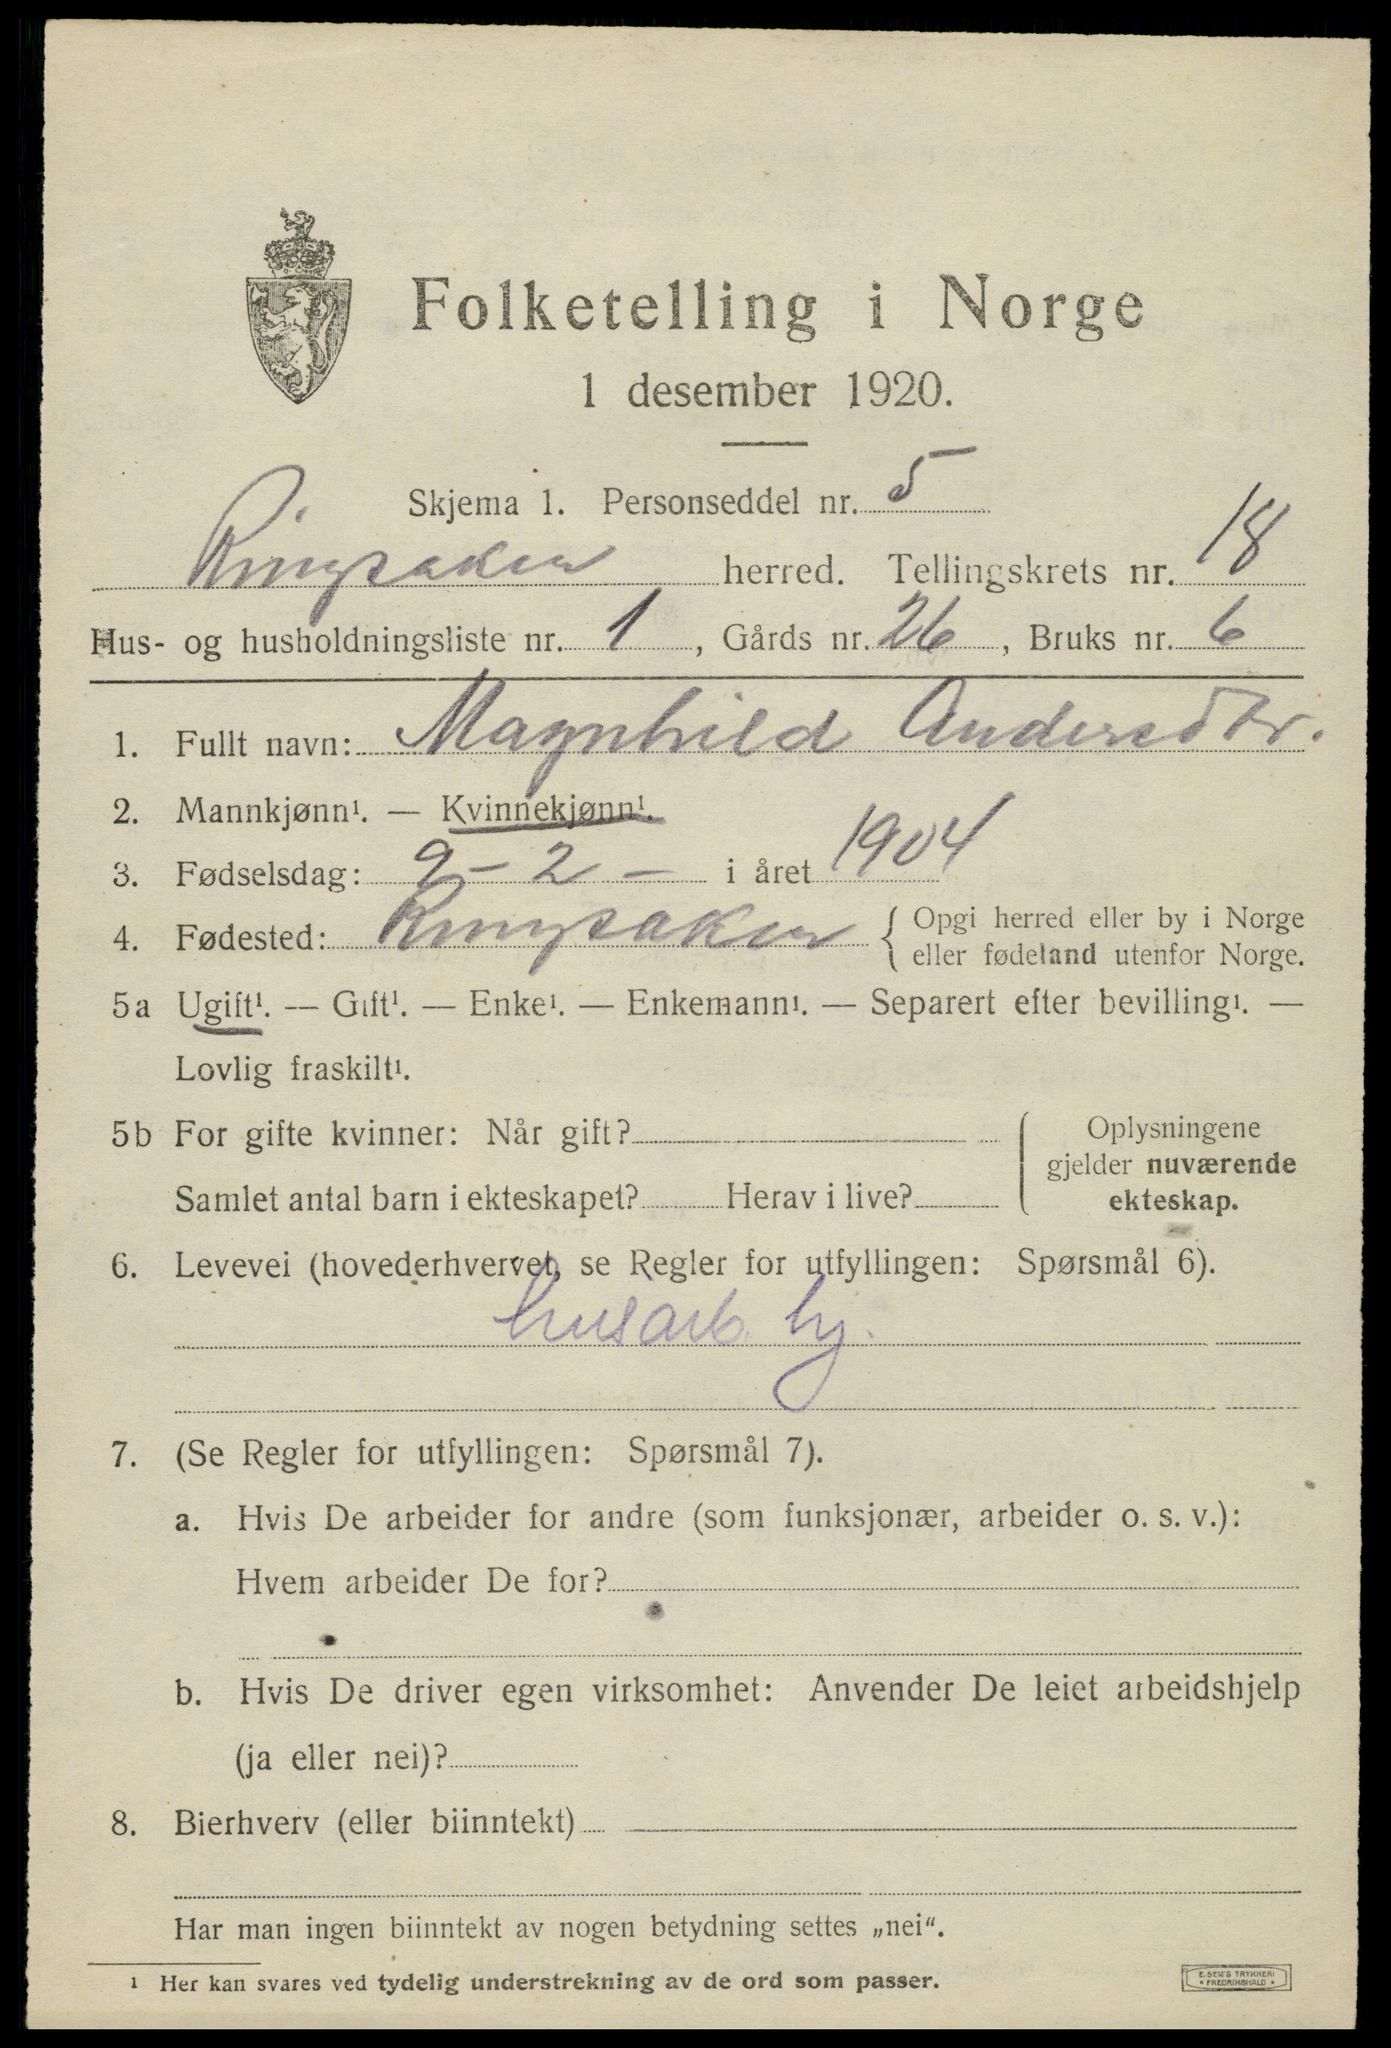 Folketelling i Norge
1 desember 1920.
Skjema 1. Personseddel nr. 5
Ringsaker herred. Tellingskrets nr. 18
Hus- og husholdningsliste nr. 1, Gårds nr. 26, Bruks nr. 6
1. Fullt navn: Magnhild Andersdtr.
2. Mannkjønn¹. — Kvinnekjønn¹.
3. Fødselsdag: 9 - 2 - i året 1904
4. Fødested: Ringsaker { Opgi herred eller by i Norge
eller fødeland utenfor Norge.
5a Ugift¹. — Gift¹. — Enke¹. — Enkemann¹. — Separert efter bevilling¹. —
Lovlig fraskilt¹.
5b For gifte kvinner: Når gift?
Samlet antal barn i ekteskapet? Herav i live?
{ Oplysningene
gjelder nuværende
ekteskap.
6. Levevei (hovederhvervet, se Regler for utfyllingen: Spørsmål 6).
husarb. hj.
7. (Se Regler for utfyllingen: Spørsmål 7).
a. Hvis De arbeider for andre (som funksjonær, arbeider o. s. v.):
Hvem arbeider De for?
b. Hvis De driver egen virksomhet: Anvender De leiet arbeidshjelp
(ja eller nei)?
8. Bierhverv (eller biinntekt)
Har man ingen biinntekt av nogen betydning settes „nei“.
¹ Her kan svares ved tydelig understrekning av de ord som passer.
E. SEM'S TRYKKERI
• FREDRIKSHALD •